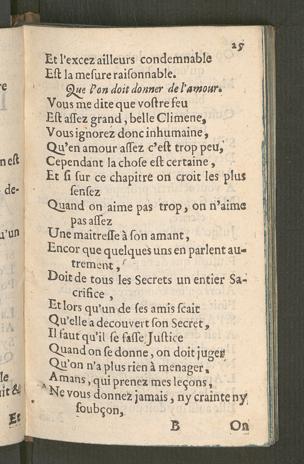 25
Et l'excez ailleurs condemnable
Est la mesure raisonnable.
Que l'on doit donner de l'amour.
Vous me dite que vostre feu
Est assez grand, belle Climene,
Vous ignorez donc inhumaine,
Qu'en amour assez c'est trop peu,
Cependant la chose est certaine,
Et si sur ce chapitre on croit les plus
sensez
Quand on aime pas trop, on n'aime
pas assez
Une maitresse à son amant,
Encor que quelques uns en parlent au-
trement,
Doit de tous les Secrets un entier Sa-
crifice,
Et lors qu'un de ses amis scait
Qu'elle a decouvert son Secret,
Il faut qu'il se fasse Justice
Quand on se donne, on doit juger
Qu'on n'a plus rien à menager,
Amans, qui prenez mes leçons,
Ne vous donnez jamais, ny crainte ny
soubçon,
B On